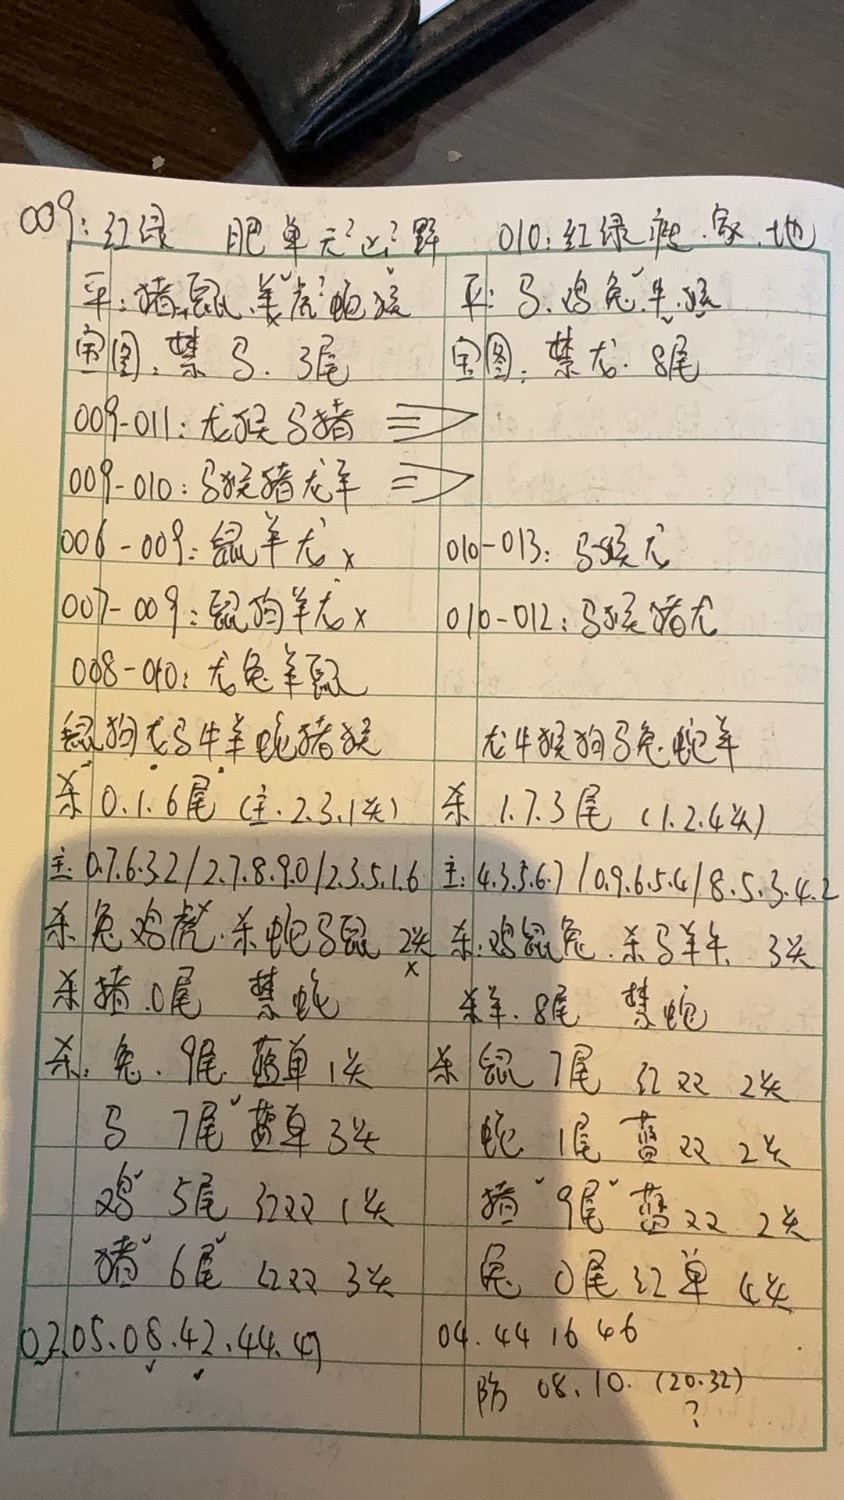 009:红绿 肥单天?凶?野 010:红绿瘦.家.地
平:猪.鼠.羊虎?蛇猴 平:马.鸡兔.牛.猴
宝图:禁马.3尾 宝图:禁龙.8尾
009-011:龙猴马猪
009-010:马猴猪龙羊
006-009:鼠羊龙x 010-013:马猴龙
007-009:鼠狗羊龙x 010-012:马猴猪龙
008-010:龙兔羊鼠
鼠狗龙马牛羊蛇猪猴 龙牛猴狗马兔蛇羊
杀0.1.6尾(主.2.3.1头) 杀1.7.3尾(1.2.4头)
主:0.7.6.3.2/2.7.8.9.0/2.3.5.1.6 主:4.3.5.6.7/0.9.6.5.4/8.5.3.4.2
杀兔鸡虎.杀蛇马鼠 2头x 杀:鸡鼠兔.杀马羊牛.3头
杀猪.0尾 禁蛇 杀羊.8尾 禁蛇
杀:兔.9尾 蓝单1头 杀鼠 7尾 红双 2头
马 7尾 蓝单 3头 蛇 1尾 蓝双 2头
鸡 5尾 红双 1头 猪 9尾 蓝双 2头
猪 6尾 红双 3头 兔 0尾 红单 4头
05.08.42.44. 04.44 16 46
防 08.10.(20.32)
?